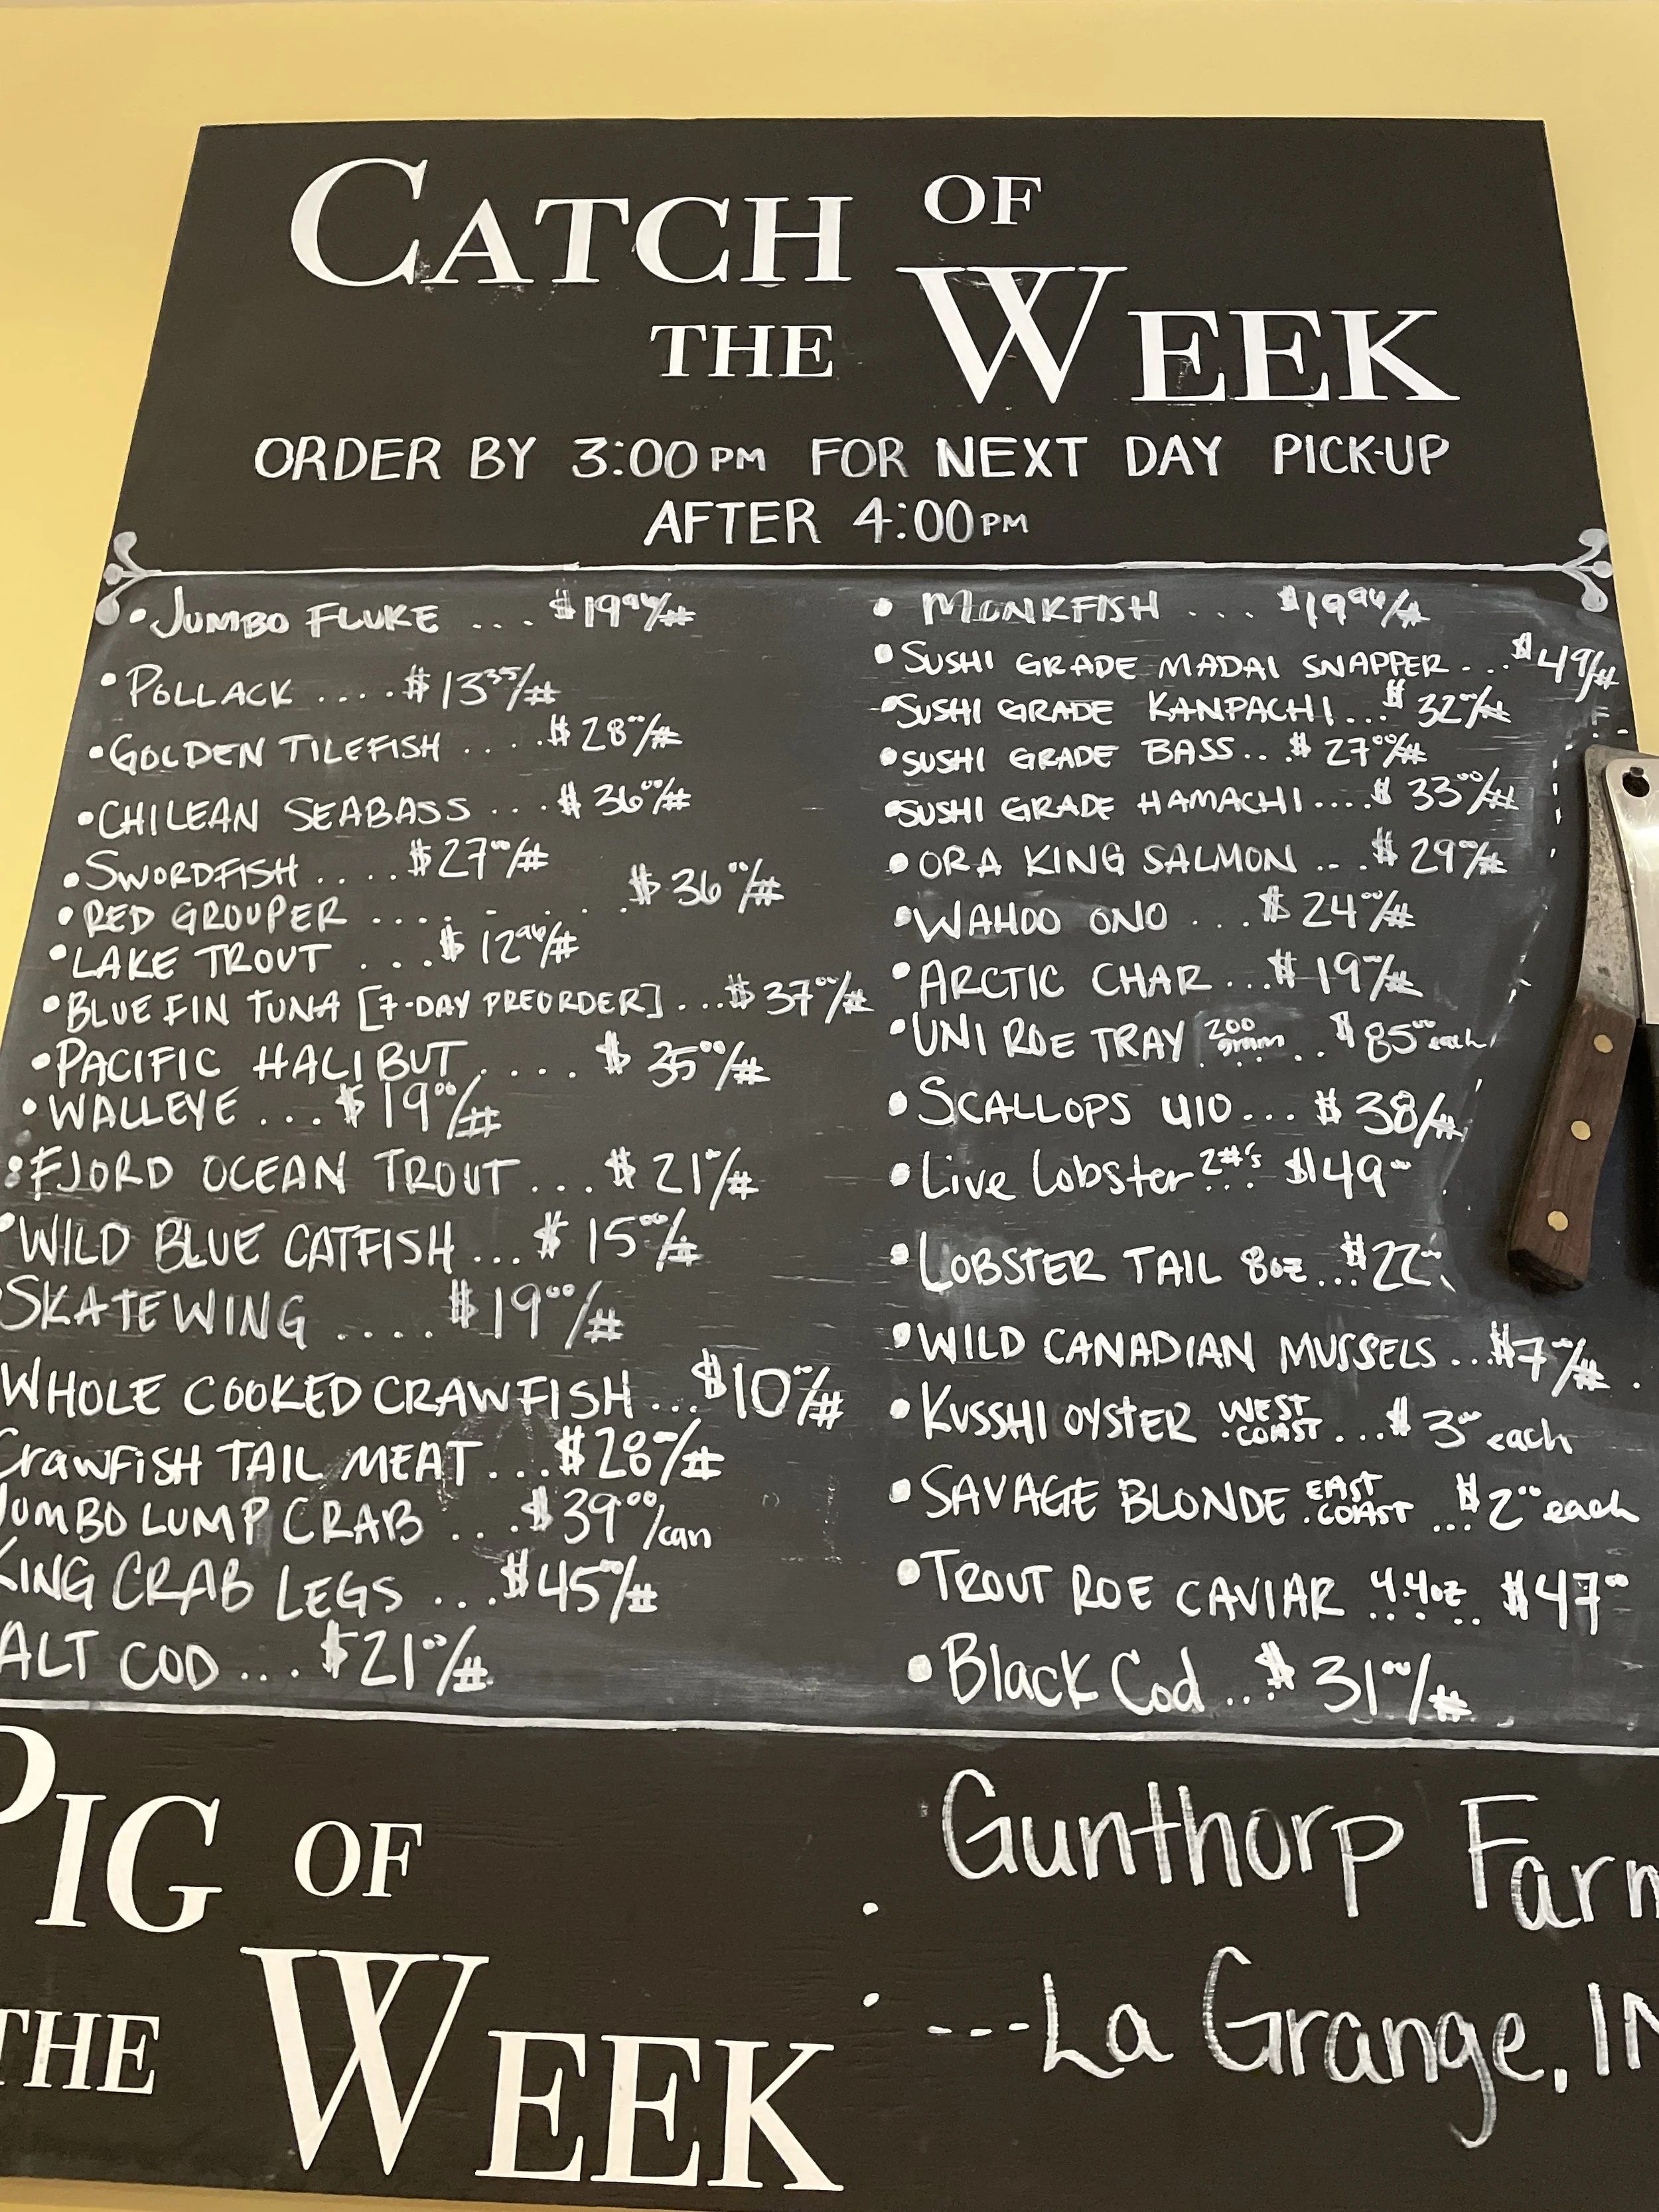 CATCH OF
THE WEEK
ORDER BY 3:00PM FOR NEXT DAY PICK-UP
AFTER 4:00PM
• JUMBO FLUKE ... $19.96/#
• POLLACK .... $13.35/#
• GOLDEN TILEFISH .... $28.00/#
• CHILEAN SEABASS ... $36.00/#
• SWORDFISH .... $27.00/#
• RED GROUPER ........ $36.00/#
• LAKE TROUT ... $12.96/#
• BLUE FIN TUNA [7-DAY PREORDER] ... $37.00/#
• PACIFIC HALIBUT .... $35.00/#
• WALLEYE ... $19.00/#
• FJORD OCEAN TROUT ... $21/#
• WILD BLUE CATFISH ... $15.00/#
SKATEWING .... $19.00/#
WHOLE COOKED CRAWFISH ... $10.00/#
CRAWFISH TAIL MEAT ... $28/#
JUMBO LUMP CRAB ... $39.00/can
KING CRAB LEGS ... $45.00/#
ALT COD ... $21.00/#
• MONKFISH ... $19.96/#
• SUSHI GRADE MADAI SNAPPER ... $49/#
• SUSHI GRADE KANPACHI ... $32.00/#
• SUSHI GRADE BASS .. $27.00/#
• SUSHI GRADE HAMACHI .... $33.00/#
• ORA KING SALMON ... $29.00/#
• WAHOO ONO ... $24.00/#
• ARCTIC CHAR ... $19/#
• UNI ROE TRAY 200 gram .... $85.00 each
• SCALLOPS U10 ... $38/#
• Live Lobster 2#'s ... $49.00
• LOBSTER TAIL 8oz ... $22.00
• WILD CANADIAN MUSSELS ... $7.00/#
• KUSSHI OYSTER WEST COAST ... $3.00 each
• SAVAGE BLONDE EAST COAST ... $2.00 each
• TROUT ROE CAVIAR 4.4oz .... $47.00
• Black Cod ... $31.00/#
PIG OF
THE WEEK
: Gunthorp Farm
---La Grange, IN